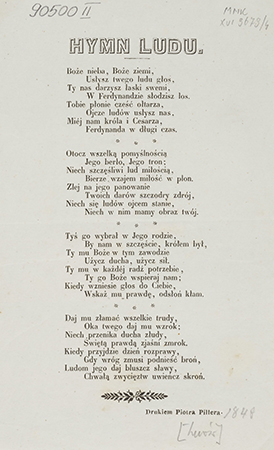 90500 II
MNK
XVI 3673/4
HYMN LUDU.
Boże nieba, Boże ziemi,
Usłysz twego ludu głos,
Ty nas darzysz łaski swemi,
W Ferdynandzie słodzisz los.
Tobie płonie cześć ołtarza,
Ojcze ludów usłysz nas,
Miéj nam króla i Cesarza,
Ferdynanda w długi czas.
Otocz wszelką pomyślnością
Jego berło, Jego tron;
Niech szczęśliwi lud miłością,
Bierze wzajem miłość w plon.
Zlej na jego panowanie
Twoich darów szczodry zdrój,
Niech się ludów ojcem stanie,
Niech w nim mamy obraz twój.
Tyś go wybrał w Jego rodzie,
By nam w szczęście, królem był,
Ty mu Boże w tym zawodzie
Użycz ducha, użycz sił.
Ty mu w każdej radź potrzebie,
Ty go Boże wspieraj nam;
Kiedy wzniesie głos do Ciebie,
Wskaż mu prawdę, odsłoń kłam.
Daj mu złamać wszelkie trudy,
Oka twego daj mu wzrok;
Niech przenika ducha złudy,
Świętą prawdą zjaśni zmrok.
Kiedy przyjdzie dzień rozprawy,
Gdy wróg zmusi podnieść broń,
Ludom jego daj bluszcz sławy,
Chwałą zwycięztw uwieńcz skroń.
Drukiem Piotra Pillera.
1848
[Lwów]